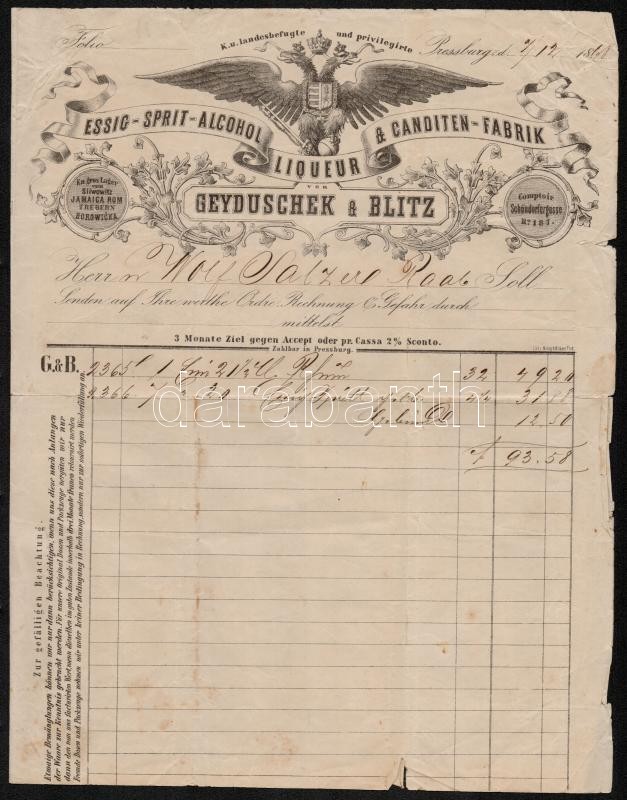 Folio
K. u. landesbefugte und privilegirte
Pressburg d. 7/12 186
ESSIG-SPRIT-ALCOHOL
LIQUEUR
& CANDITEN-FABRIK
VON
GEYDUSCHEK & BLITZ
En gros Lager
von
Sliwowitz
JAMAICA RUM
TREBERN
BOROWIČKA
Comptoir
Schöndorfergasse
No. 187.
Herrn Wolf Salzer Raab Soll
Senden auf Ihre werthe Ordre Rechnung & Gefahr durch
mittelst
3 Monate Ziel gegen Accept oder pr. Cassa 2% Sconto.
Zahlbar in Pressburg.
G.&B. 2365 1 21½ 32 49 20
2366 31 88
12.50
93.58
Zur gefälligen Beachtung.
Etwaige Bemänglungen können wir nur dann berücksichtigen, wenn uns diese nach Anlangen
der Waare zur Kenntnis gebracht werden. Für unsere Original Dosen und Packzeuge vergüten wir nur
dann den von uns facturirten Wert, wenn dieselben im guten Zustande innerhalb drei Monate franco retournirt werden
Fremde Dosen und Packzeuge nehmen wir unter keiner Bedingung in Rechnung, sondern nur zur sofortigen Wiederfüllung an.
darabanth